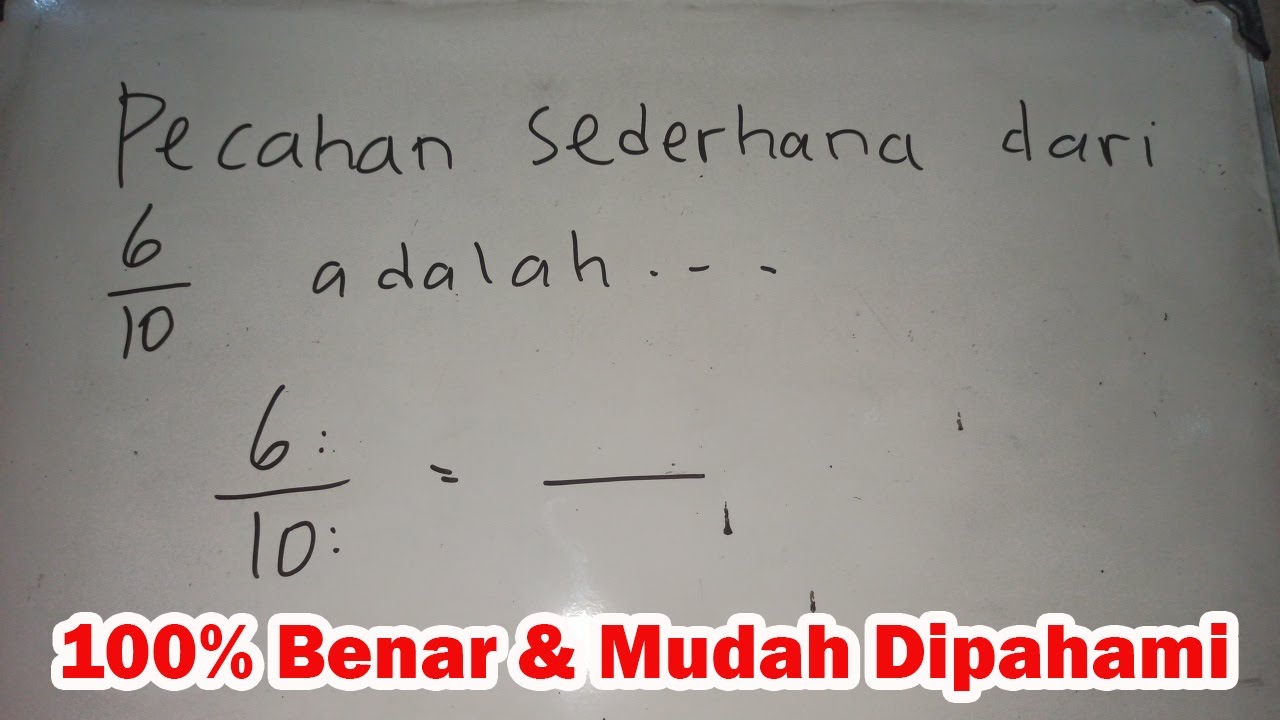 Pecahan sederhana dari
6/10 adalah...
6: / 10: = ___
100% Benar & Mudah Dipahami